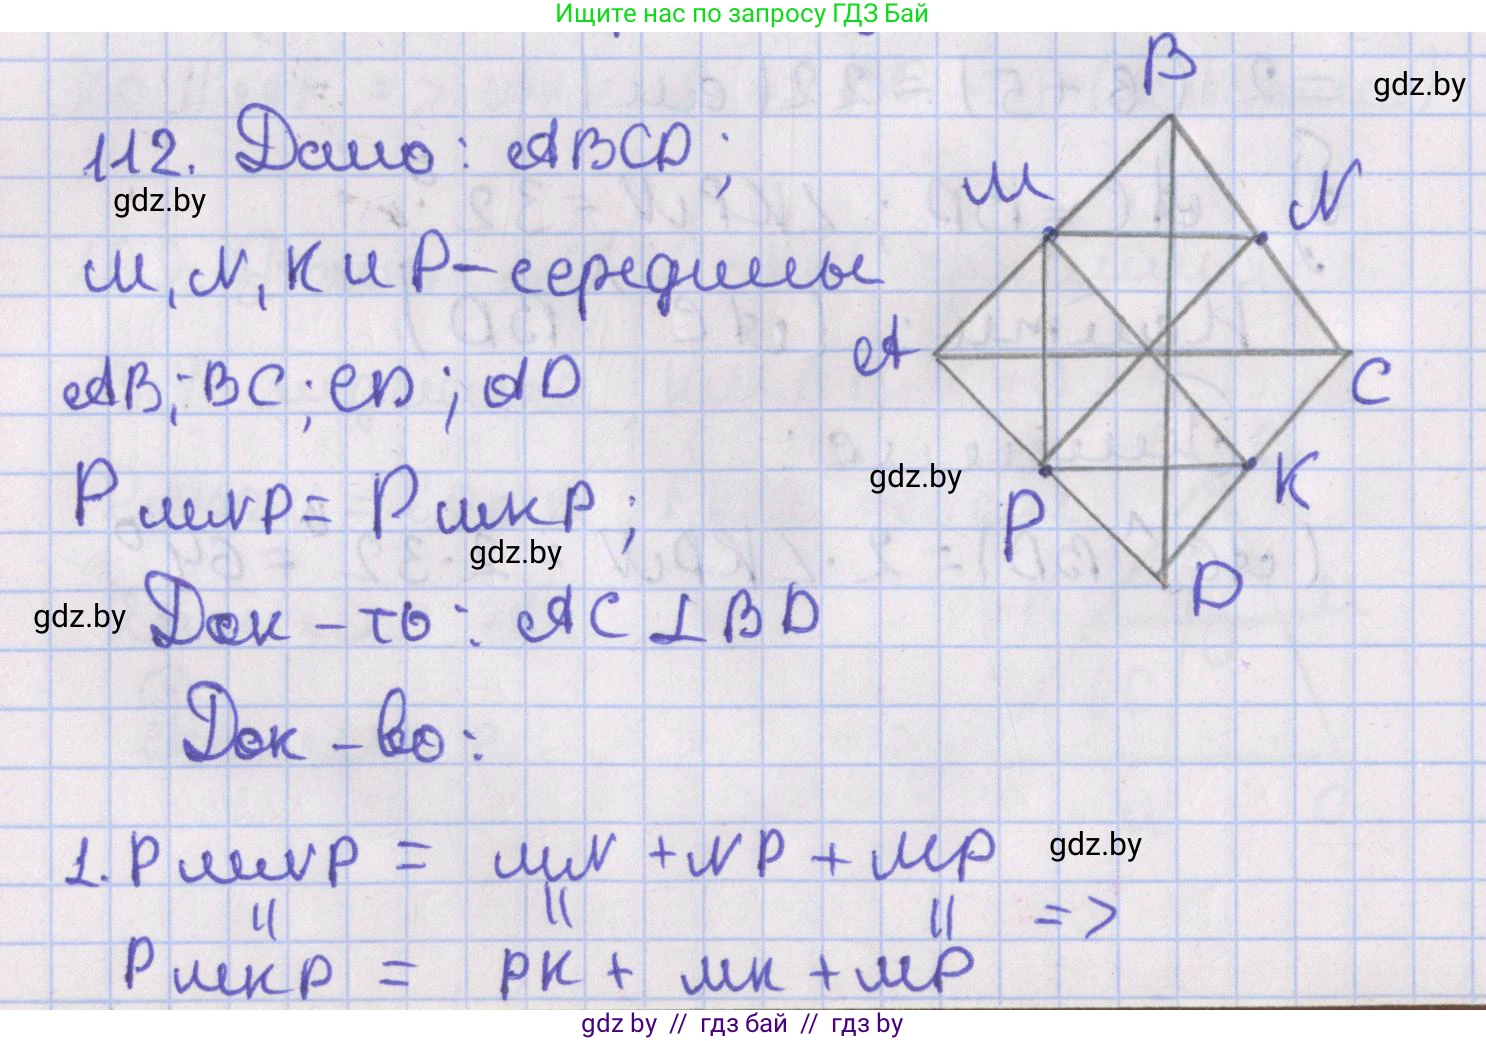 Ищите нас по запросу ГДЗ Бай
B
gdz.by
112. Дано: ABCD;
gdz.by
M
N
M, N, K и P - середины
A
C
AB; BC; CD; AD
gdz.by
K
P MNP = P MKP;
P
gdz.by
D
gdz.by
Док-ть: AC ⊥ BD
Док-во:
1. P MNP = MN + NP + MP
gdz.by
= = = =>
P MKP = PK + MK + MP
gdz by // гдз бай // гдз by